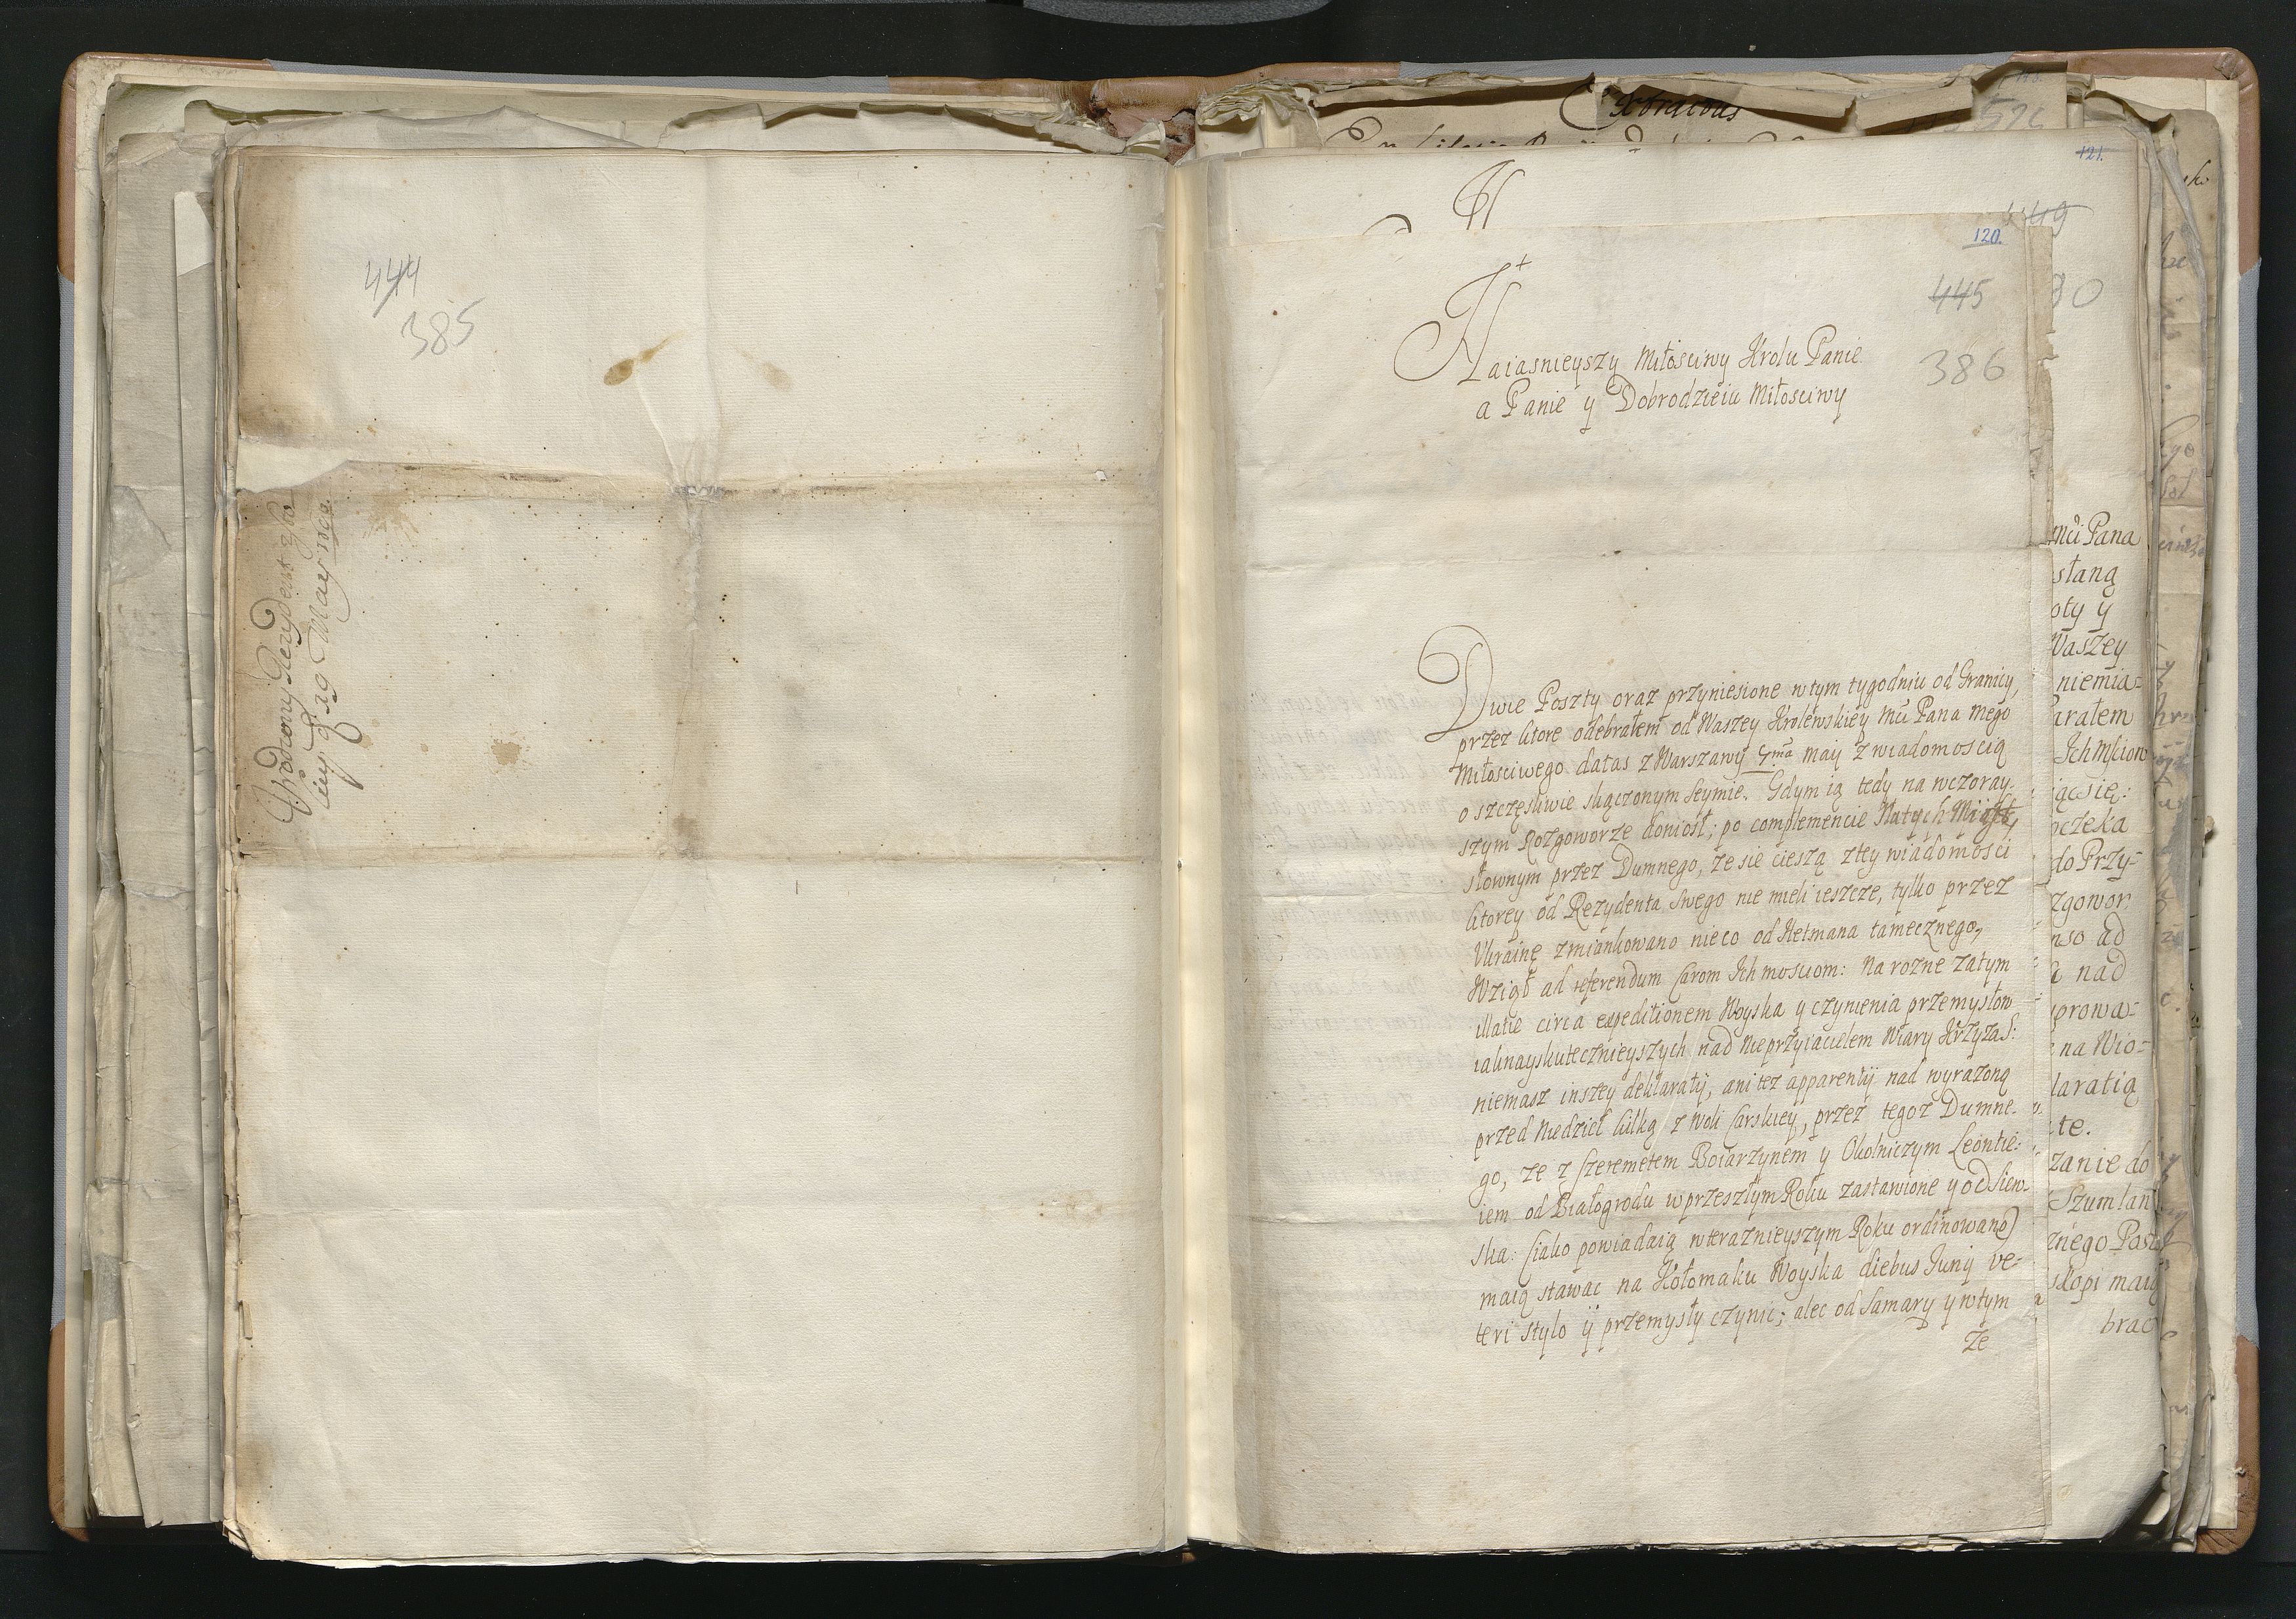 444
385
Urodzony Rezydent
29 May
121.
149
120.
445
386
Naiasnieyszy Miłosciwy Krolu Panie
a Panie y Dobrodzieiu Miłosciwy
Dwie Poszty oraz przyniesione w tym tygodniu od Granicy,
przez ktore odebrałem od Waszey Krolewskiey Mci Pana mego
Miłosciwego datas z Warszawy 4ma Maij z wiadomoscią
o szczęsliwie skączonym Seymie. Gdym ią tedy na wczoray-
szym Rozgoworze doniosł; po complemencie Natych Miast,
słownym przez Dumnego, ze sie cieszą z tey wiadomosci
ktorey od Rezydenta swego nie mieli ieszcze, tylko przez
Ukrainę zmiankowano nieco od Hetmana tamecznego,
Wziął ad referendum Carom Ich mosciom: Na rozne zatym
illatie circa expeditionem Woyska y czynienia przemysłow
iaknayskutecznieyszych nad Nieprzyiacielem Wiary Krzyzas:
niemasz inszey deklaratij, ani tez apparentij nad wyrazoną
przed Niedziel kilką z Woli Carskiey, przez tegoz Dumne-
go, ze z Szeremetem Boiarzynem y Okolniczym Leontie:
iem od Białogrodu w przeszłym Roku zastawione y od Siew-
ska: (iako powiadaią w teraznieyszym Roku ordinowane)
maią stawac na Kołomaku Woyska diebus Junij ve-
teri stylo ij przemysły czynic; alec od Samary y w tym
ze
Mci Pana
słaną
oty y
Waszey
niemia=
arałem
Ich Mciow
iąc się:
oczeka
do Przy=
zgowor
nso ad
nad
prowa=
na Wio=
laratią
te.
zanie do
Szumlan
znego Pos
skopi maią
brac